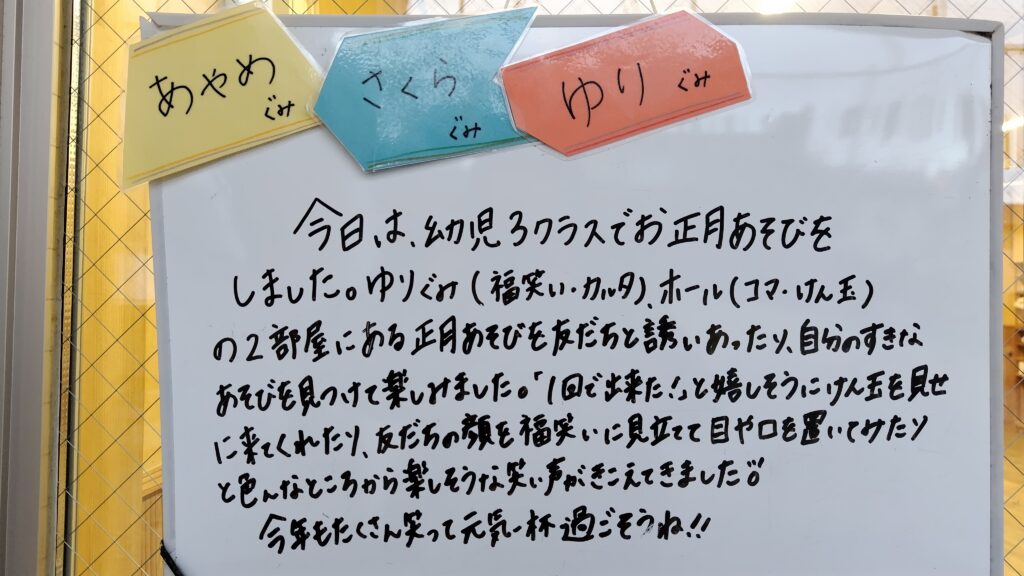 あやめ ぐみ
さくら ぐみ
ゆり ぐみ
今日は、幼児3クラスでお正月あそびを
しました。ゆりぐみ(福笑い・カルタ)、ホール(コマ・けん玉)
の2部屋にある正月あそびを友だちと誘いあったり、自分のすきな
あそびを見つけて楽しみました。「1回で出来た!」と嬉しそうにけん玉を見せ
に来てくれたり、友だちの顔を福笑いに見立てて目や口を置いてみたり
と色んなところから楽しそうな笑い声がきこえてきました。
今年もたくさん笑って元気一杯過ごそうね!!